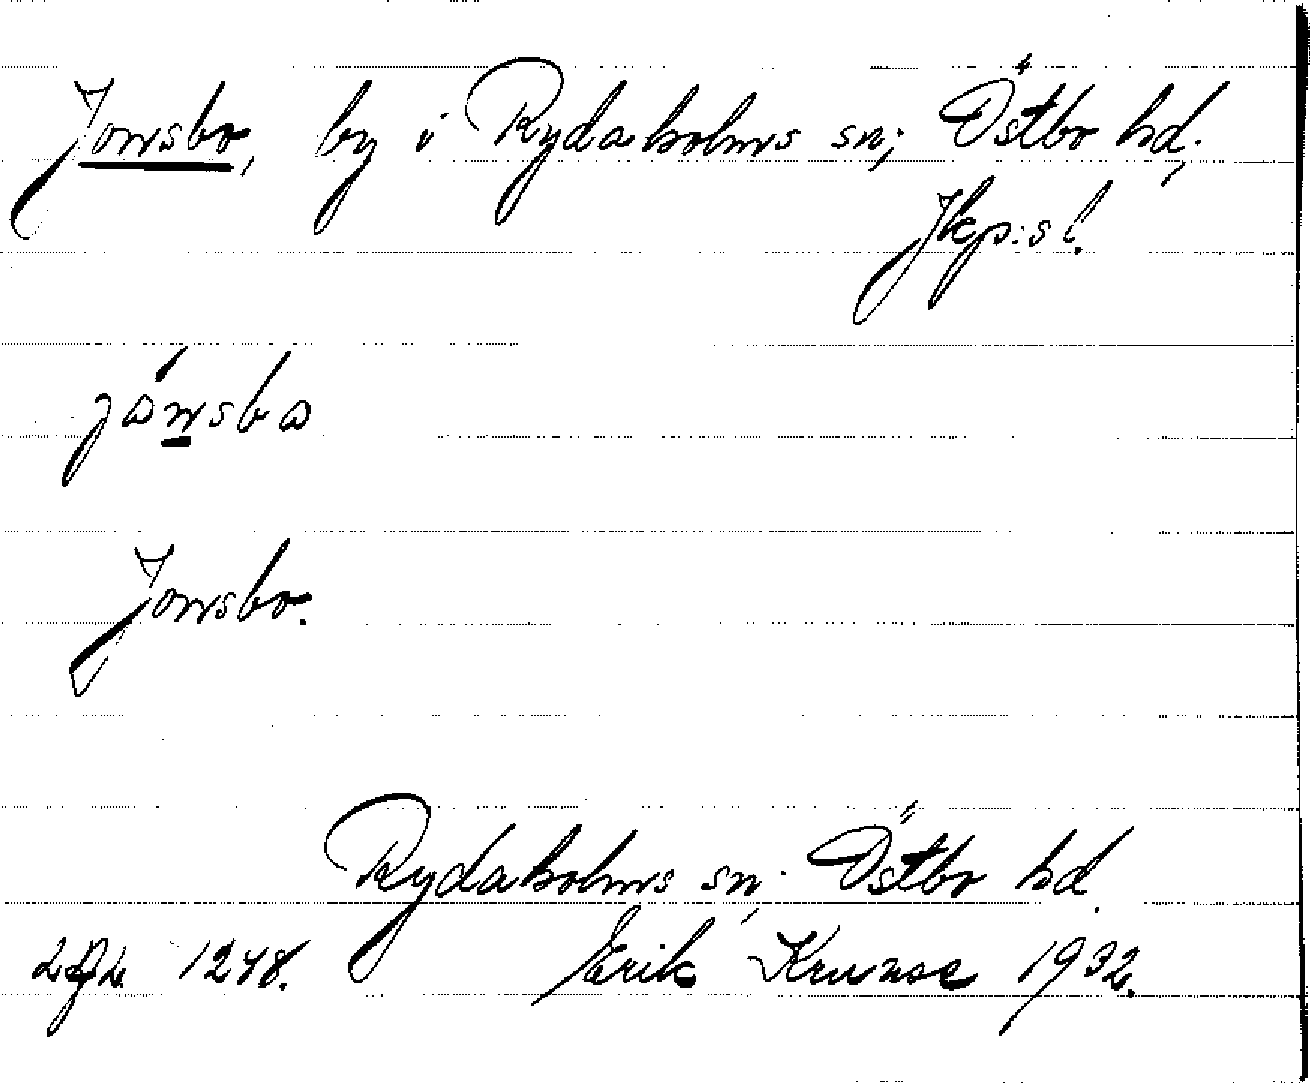 Jonsbo, by i Rydaholms sn; Östbo hd;
Jkp:s l.
Jonsbo.
Rydaholms sn; Östbo hd.
1248. Erik Kruuse 1932.